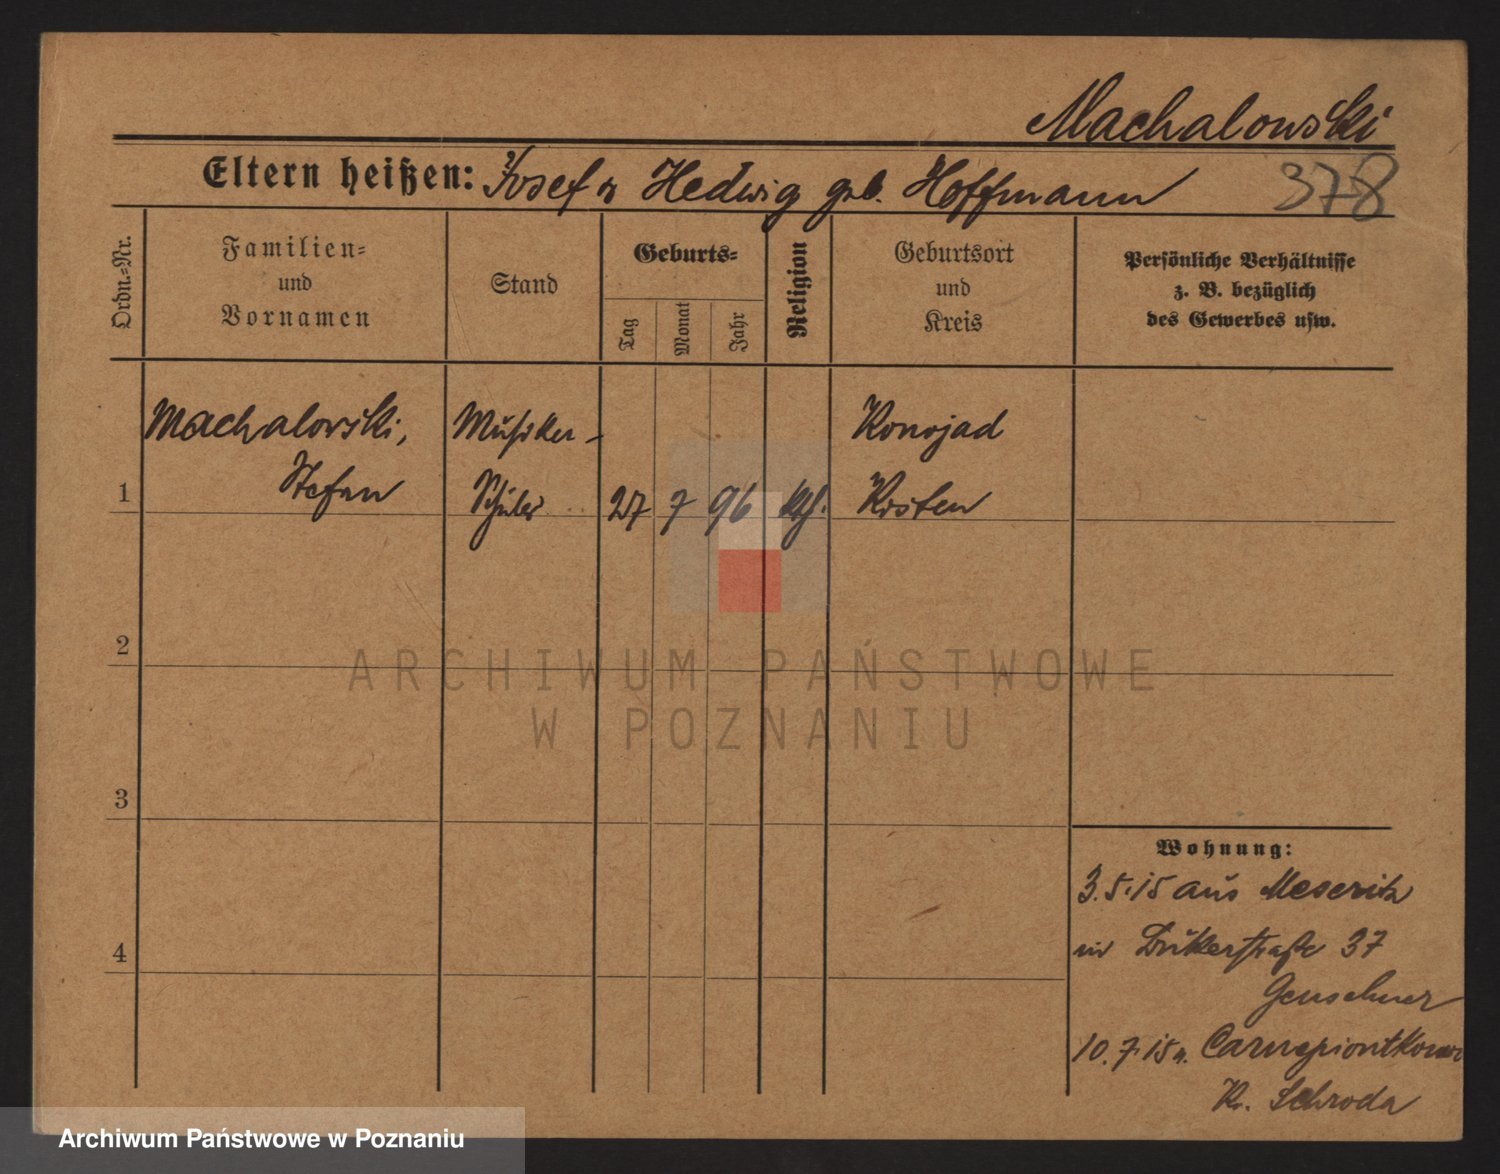 Machalowski
Eltern heißen: Josef u Hedwig geb. Hoffmann
378
Ordn.=Nr.
Familien=
und
Vornamen
Stand
Geburts=
Tag
Monat
Jahr
Religion
Geburtsort
und
Kreis
Persönliche Verhältnisse
z. B. bezüglich
des Gewerbes usw.
Machalovski, Musiker- Konojad
1 Stefan Schüler 27 7 96 kth. Kosten
2
ARCHIWUM PAŃSTWOWE
W POZNANIU
3
Wohnung:
3.5.15 aus Meseritz
in 37
4
10.7.15 n.
Kr. Schroda
Archiwum Państwowe w Poznaniu